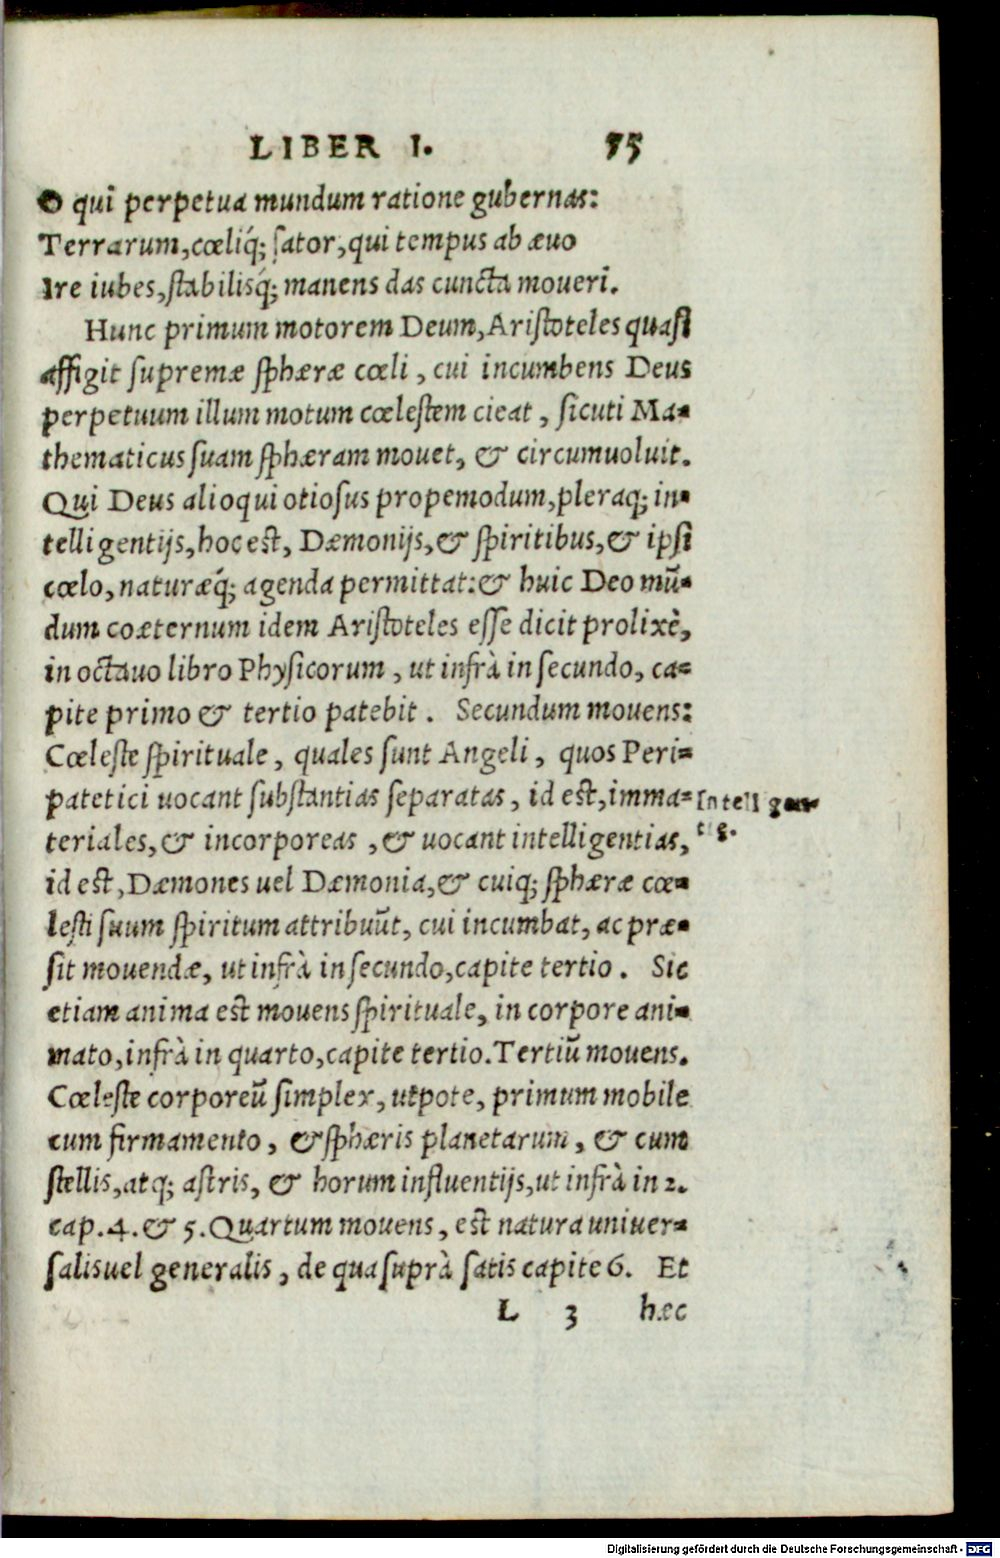 LIBER I. 75
O qui perpetua mundum ratione gubernas:
Terrarum, cœliq́; sator, qui tempus ab æuo
Ire iubes, stabilisq́; manens das cuncta moueri.
Hunc primum motorem Deum, Aristoteles quasi
affigit supremæ sphæræ cœli, cui incumbens Deus
perpetuum illum motum cœlestem cieat, sicuti Ma-
thematicus suam sphæram mouet, & circumuoluit.
Qui Deus alioqui otiosus propemodum, pleraq; in-
telligentijs, hoc est, Dæmonijs, & spiritibus, & ipsi
cœlo, naturæq́; agenda permittat: & huic Deo mū-
dum coæternum idem Aristoteles esse dicit prolixè,
in octauo libro Physicorum, ut infrà in secundo, ca-
pite primo & tertio patebit. Secundum mouens:
Cœleste spirituale, quales sunt Angeli, quos Peri-
patetici uocant substantias separatas, id est, imma-
teriales, & incorporeas, & uocant intelligentias,
id est, Dæmones uel Dæmonia, & cuiq; sphæræ cœ-
lesti suum spiritum attribuūt, cui incumbat, ac præ-
sit mouendæ, ut infrà in secundo, capite tertio. Sic
etiam anima est mouens spirituale, in corpore ani-
mato, infrà in quarto, capite tertio. Tertiū mouens.
Cœleste corporeū simplex, utpote, primum mobile
cum firmamento, & sphæris planetarum, & cum
stellis, atq; astris, & horum influentijs, ut infrà in 2.
cap. 4. & 5. Quartum mouens, est natura uniuer-
salis uel generalis, de qua suprà satis capite 6. Et
L 3 hæc
Digitalisierung gefördert durch die Deutsche Forschungsgemeinschaft - DFG